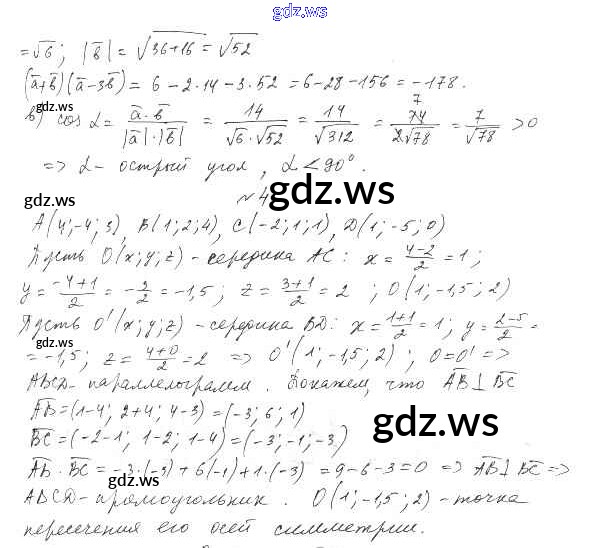 gdz.ws
= √6; |b̄| = √(36+16) = √52
(ā+b̄)(ā-3b̄) = 6-2·14-3·52 = 6-28-156 = -178.
gdz.ws
в) cos α = (ā·b̄)/(|ā|·|b̄|) = 14/(√6·√52) = 14/√312 = 14/(2√78) = 7/√78 > 0
=> α - острый угол, α < 90°.
gdz.ws gdz.ws
№4
A(4;-4;3), B(1;2;4), C(-2;1;1), D(1;-5;0)
Пусть O(x;y;z) - середина AC: x = (4-2)/2 = 1;
y = (-4+1)/2 = -3/2 = -1,5; z = (3+1)/2 = 2; O(1;-1,5;2)
Пусть O'(x;y;z) - середина BD: x = (1+1)/2 = 1; y = (2-5)/2 =
gdz.ws
= -1,5; z = (4+0)/2 = 2 => O'(1;-1,5;2); O=O' =>
ABCD - параллелограмм. Докажем, что AB ⊥ BC
AB = (1-4; 2+4; 4-3) = (-3; 6; 1)
gdz.ws
BC = (-2-1; 1-2; 1-4) = (-3;-1;-3)
gdz.ws
AB · BC = -3·(-3)+6(-1)+1·(-3) = 9-6-3=0 => AB ⊥ BC =>
ABCD - прямоугольник. O(1;-1,5;2) - точка
gdz.ws gdz.ws
пересечения его осей симметрии.